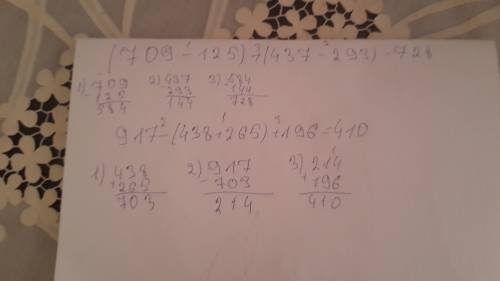 (709 - 125) + (437 - 293) = 728
1) 709 2) 437 3) 584
- 125 - 293 + 144
584 144 728
917 - (438 + 265) + 196 = 410
1) 438 2) 917 3) 214
+ 265 - 703 + 196
703 214 410